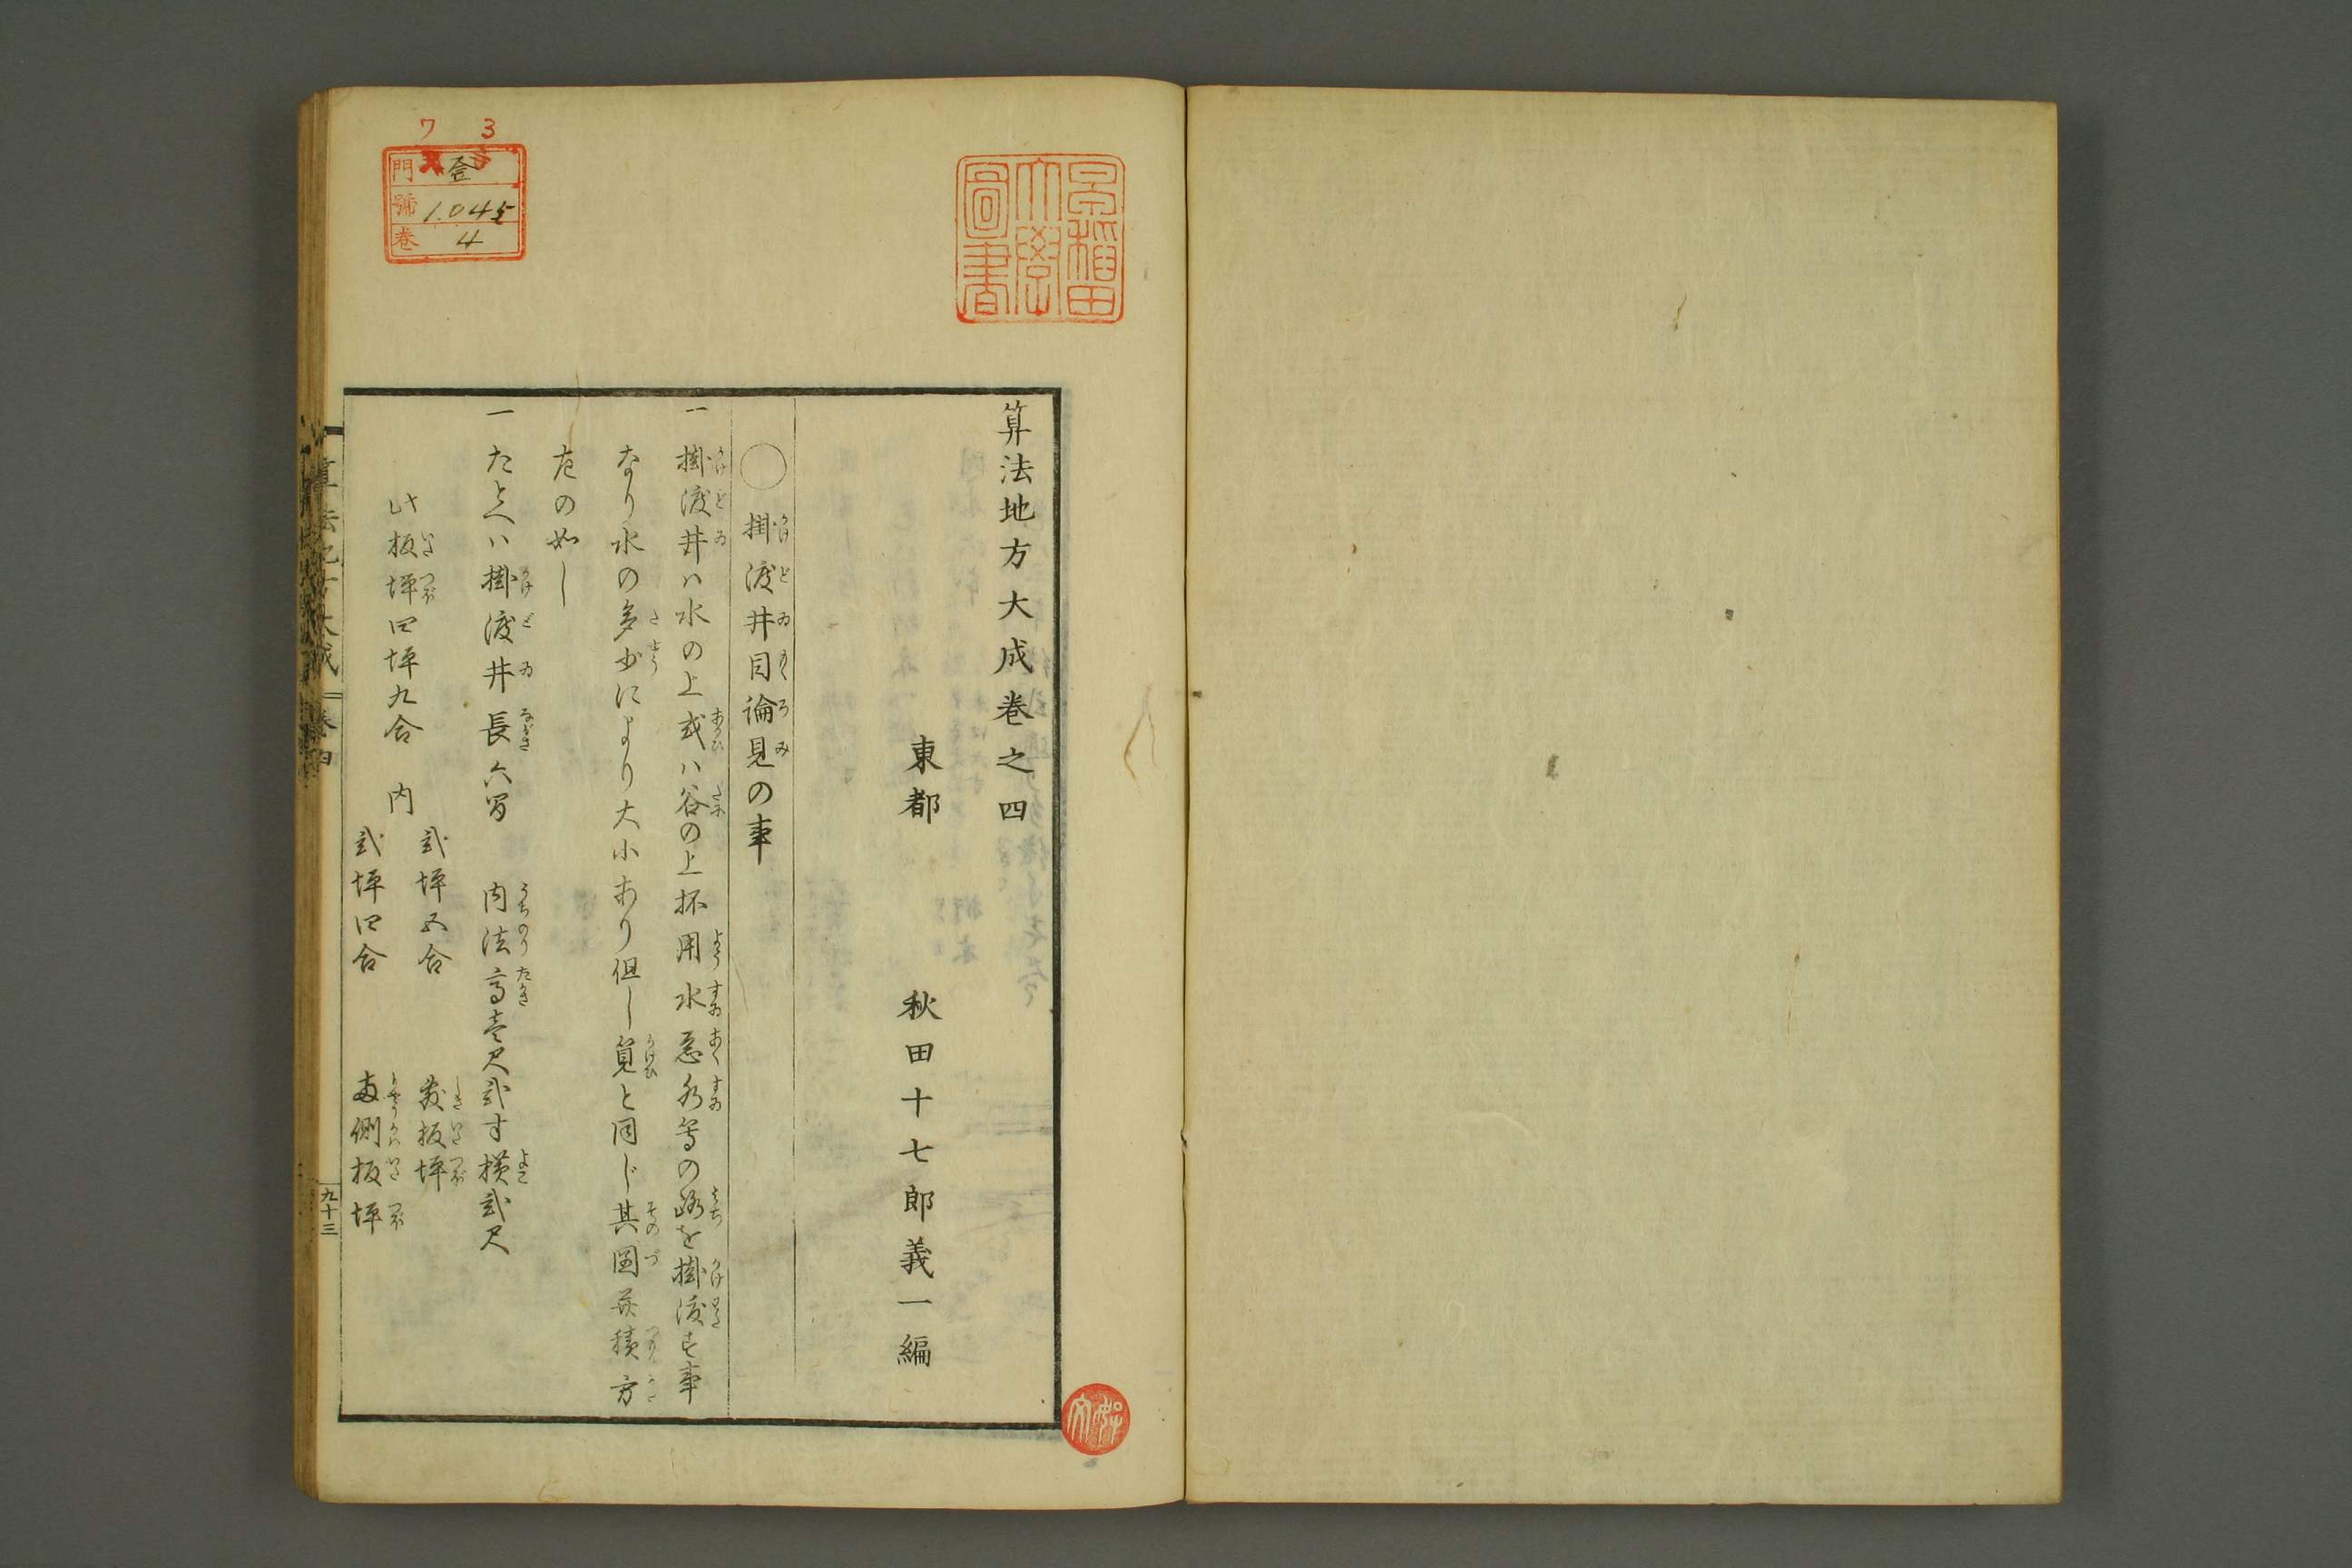 算法地方大成巻之四
東都　秋田十七郎義一編
〇掛渡井目論見の事
一掛渡井ハ水の上或ハ谷の上抔用水悪水等の路を掛渡す事
なり水の多少により大小あり但し筧と同じ其図并積方
左の如し
一たとへハ掛渡井長六間　内法高壱尺弐寸横弐尺
此板坪四坪九合　内
弐坪五合　敷板坪
弐坪四合　両側板坪
算法地方大成　巻四
九十三
早稲田大學圖書
ワ 3
門 登
號 1.045
巻 4